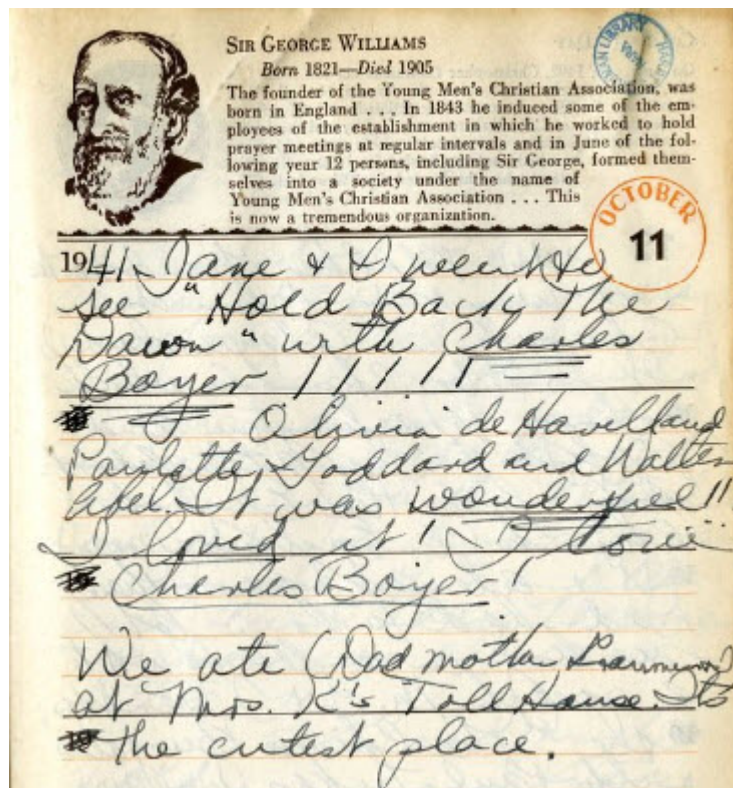 SIR GEORGE WILLIAMS
Born 1821—Died 1905
The founder of the Young Men's Christian Association, was
born in England . . . In 1843 he induced some of the em-
ployees of the establishment in which he worked to hold
prayer meetings at regular intervals and in June of the fol-
lowing year 12 persons, including Sir George, formed them-
selves into a society under the name of
Young Men's Christian Association . . . This
is now a tremendous organization.
LIBRARY
OCTOBER
11
1941 Jane & I went to
see "Hold Back The
Dawn" with Charles
Boyer ! ! ! ! !
Olivia de Havilland
Paulette Goddard and Walter
Abel. It was wonderful !!
I loved it! I love
Charles Boyer!
We ate (Dad mother
at Mrs. K's Toll House. It's
the cutest place.